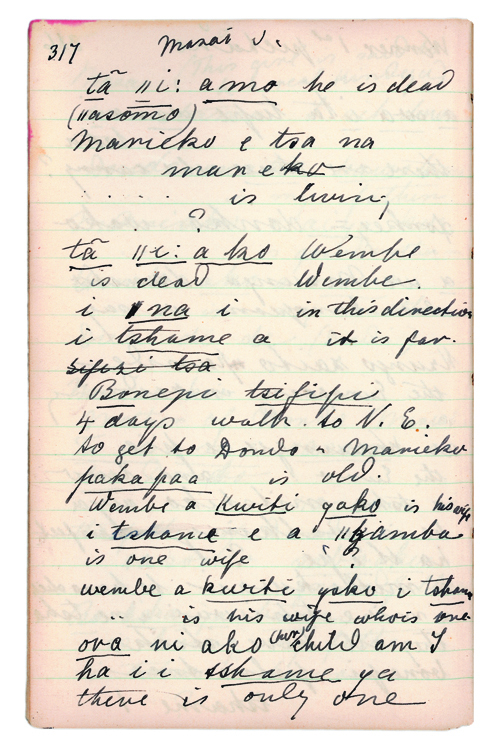 317 Masai v.
tã ǁi: amo he is dead
(ǁasomo)
Marieko e tsa na
mane ko
. . . . . . is living
?
tã ǁi: a ko Wembe
is dead Wembe.
i na i in this direction
i tshame a it is far.
sifizi tsa
Bonepi tsifipi
4 days walk. to N. E.
to get to Dondo " Marieko
paka paa is old.
Wembe a kwiti yako is his wife
i tshame e a ǁkamba
is one wife ?
wembe a kwiti yoko i tsham
" is his wife who is one
ova ni ako (her) child am I
ha i i tshame ya
there is only one